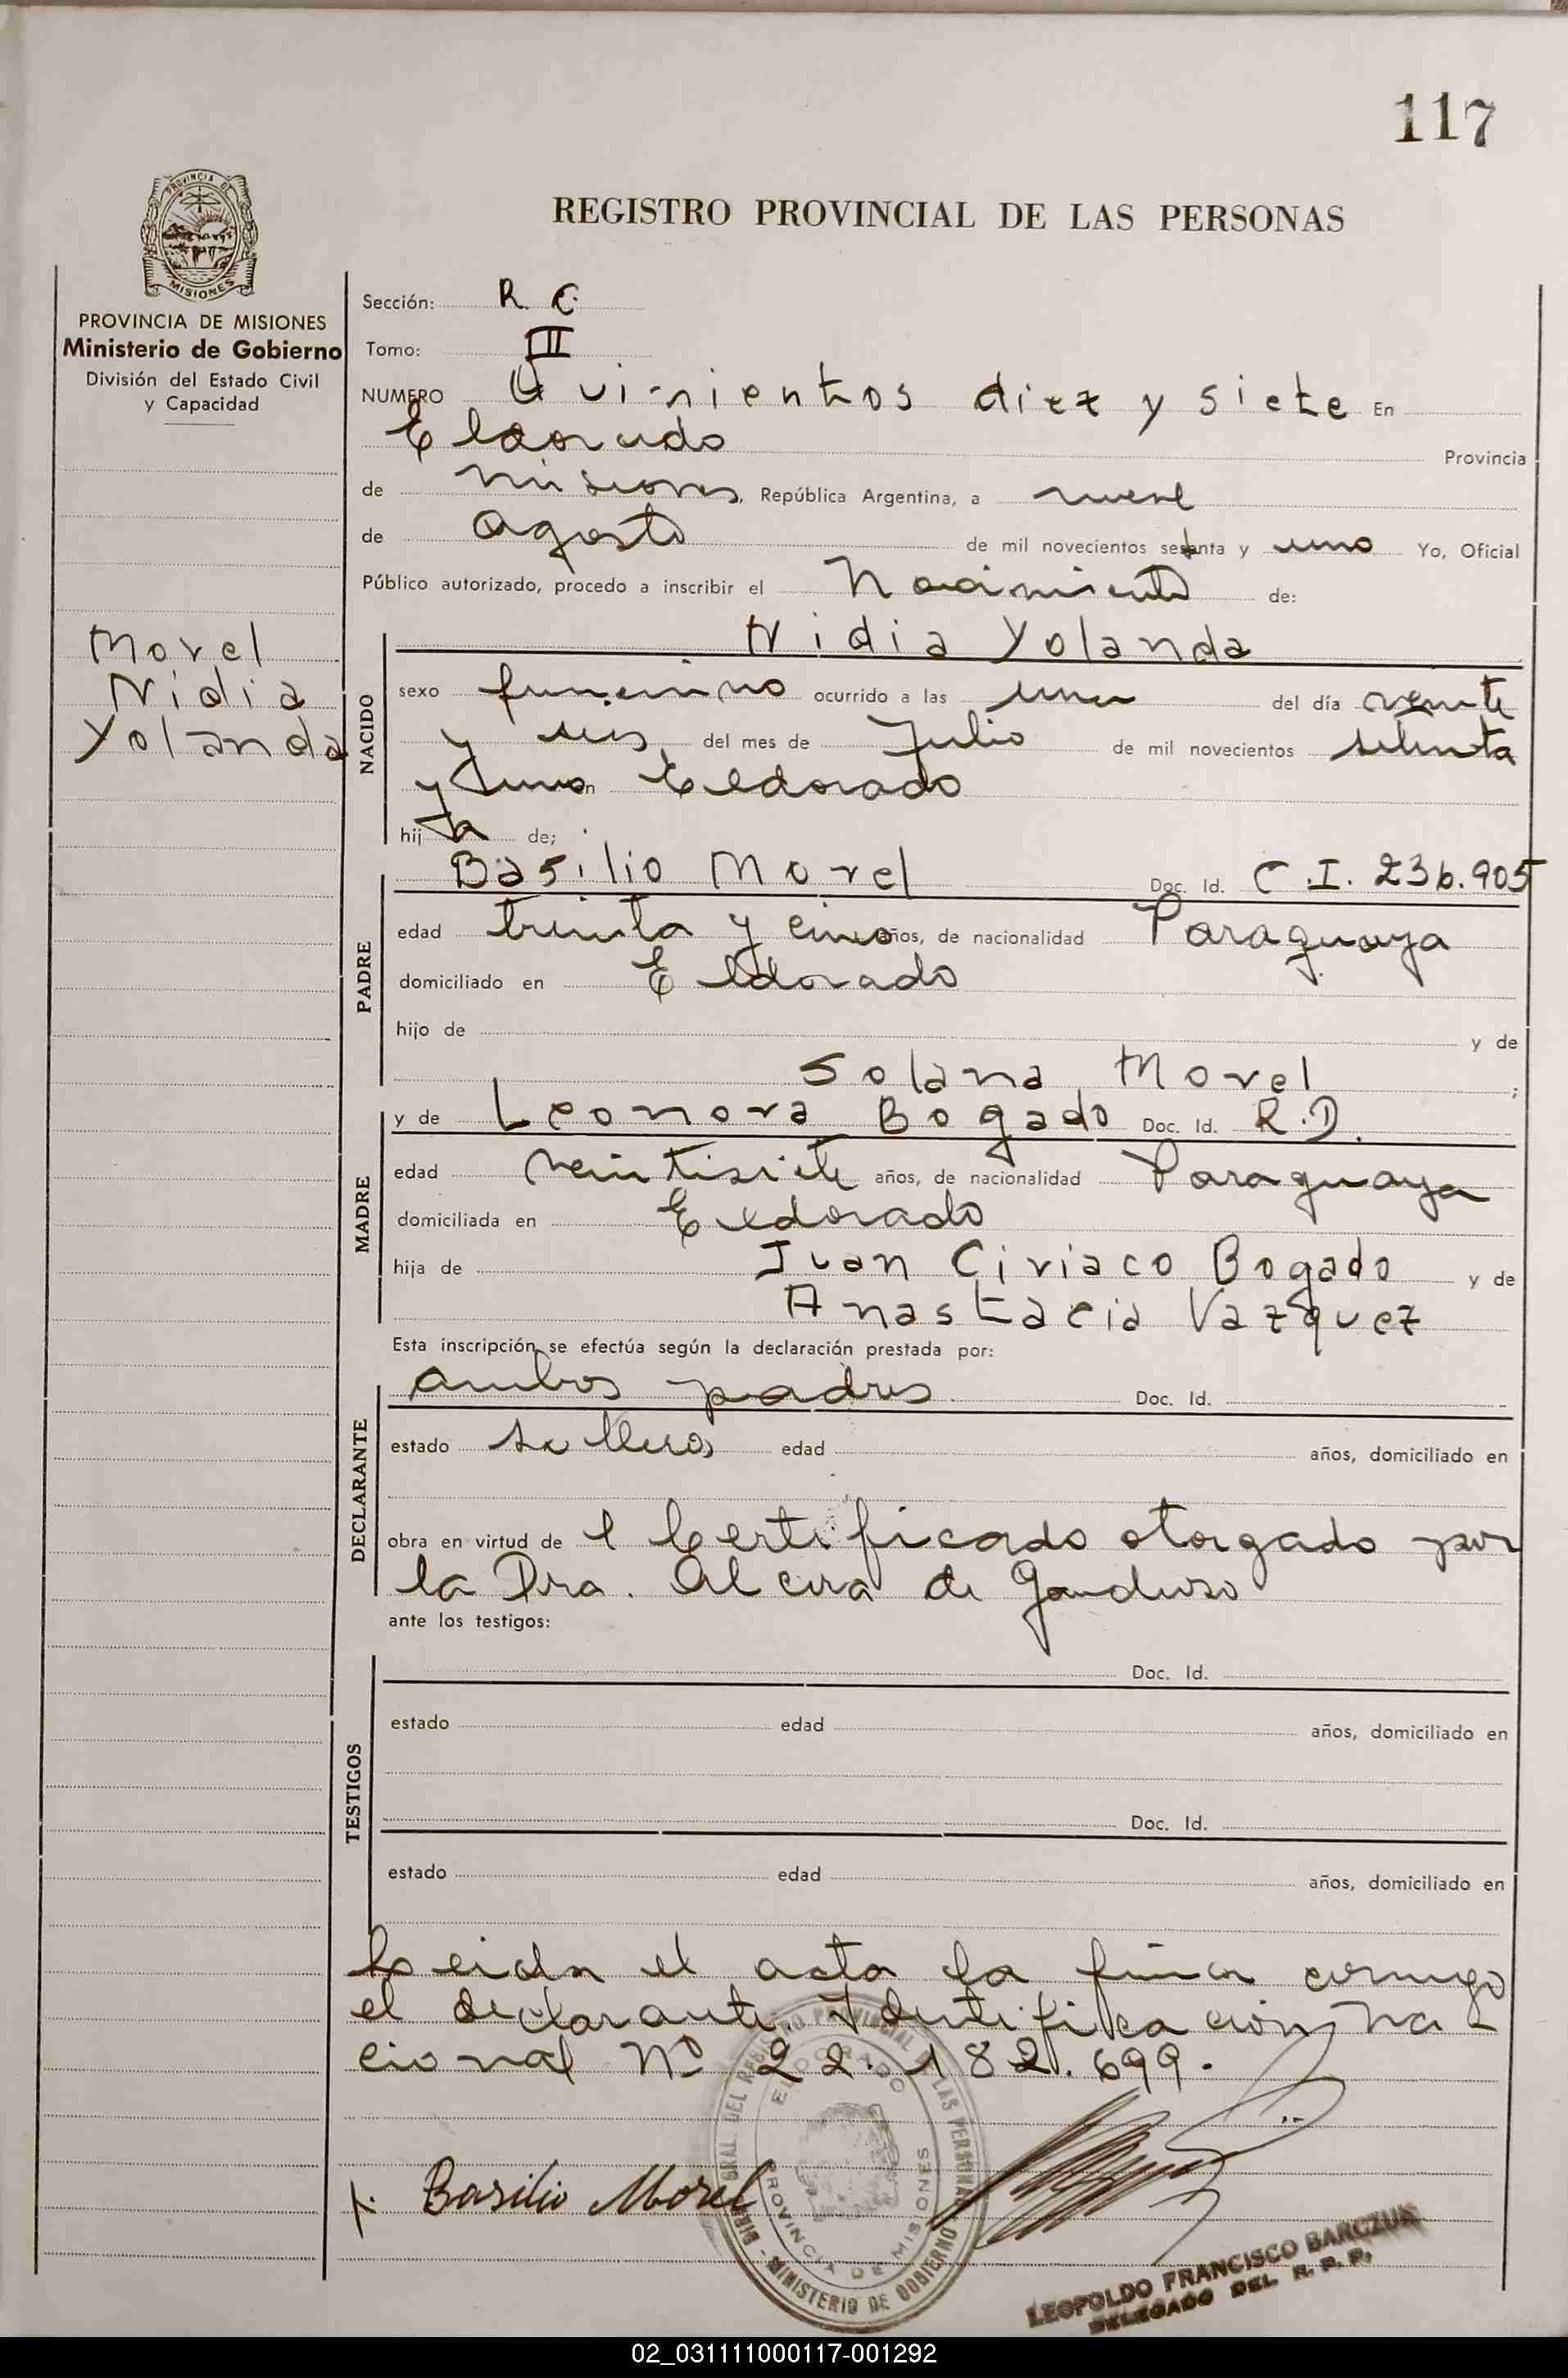 117
REGISTRO PROVINCIAL DE LAS PERSONAS
PROVINCIA DE MISIONES
PROVINCIA DE MISIONES
Ministerio de Gobierno
División del Estado Civil
y Capacidad
Morel
Nidia
Yolanda
Sección: R. C.
Tomo: III
NUMERO Quinientos diez y siete En
Eldorado Provincia
de Misiones, República Argentina, a nueve
de agosto de mil novecientos setenta y uno Yo, Oficial
Público autorizado, procedo a inscribir el Nacimiento de:
NACIDO
Nidia Yolanda
sexo femenino ocurrido a las una del día veinte
y seis del mes de Julio de mil novecientos setenta
y uno en Eldorado
hija de;
PADRE
Basilio Morel Doc. Id. C.I. 236.905
edad treinta y cinco años, de nacionalidad Paraguaya
domiciliado en Eldorado
hijo de y de
Solana Morel ;
MADRE
y de Leonora Bogado Doc. Id. R.D.
edad veintisiete años, de nacionalidad Paraguaya
domiciliada en Eldorado
hija de Juan Ciriaco Bogado y de
Anastacia Vazquez
Esta inscripción se efectúa según la declaración prestada por:
DECLARANTE
ambos padres Doc. Id.
estado solteros edad años, domiciliado en
obra en virtud de l Certificado otorgado por
la Dra. Alcira de
ante los testigos:
TESTIGOS
Doc. Id.
estado edad años, domiciliado en
Doc. Id.
estado edad años, domiciliado en
Leida el acta la firma conmigo
el declarante. Identificación Na-
cional Nº 22.182.699.
x. Basilio Morel
DIR. GRAL. DEL REGISTRO PROVINCIAL DE LAS PERSONAS
- MINISTERIO DE GOBIERNO -
ELDORADO
PROVINCIA DE MISIONES
LEOPOLDO FRANCISCO BARCZUK
DELEGADO DEL R. P. P.
02_031111000117-001292